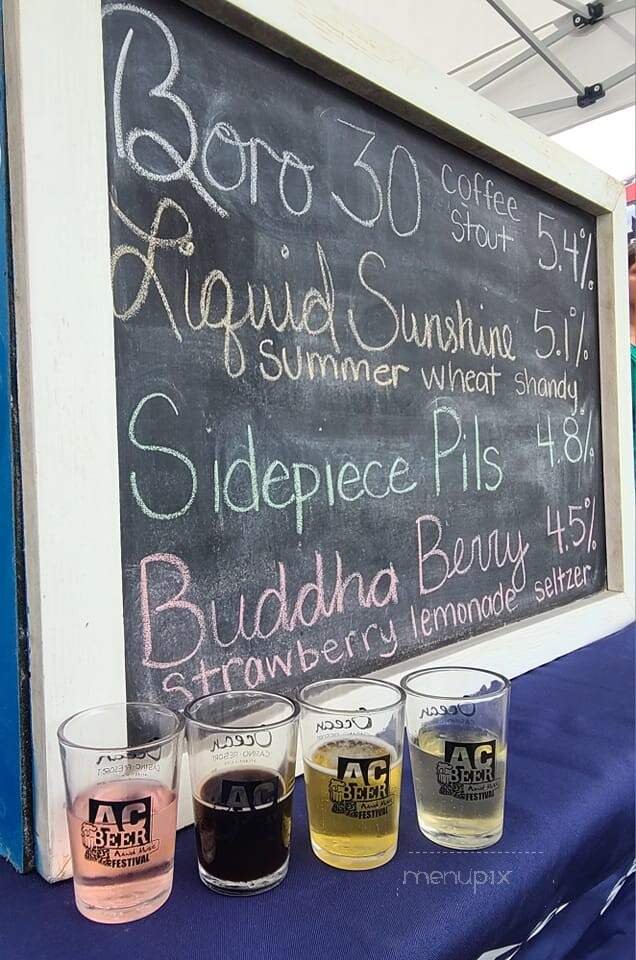 Boro 30 coffee stout 5.4%
Liquid Sunshine 5.1%
summer wheat shandy
Sidepiece Pils 4.8%
Buddha Berry 4.5%
strawberry lemonade seltzer
Ocean
CASINO RESORT
Ocean
CASINO RESORT
Ocean
Ocean
AC
BEER
And Music
FESTIVAL
AC
AC
BEER
And Music
FESTIVAL
AC
BEER
And Music
FESTIVAL
menupix